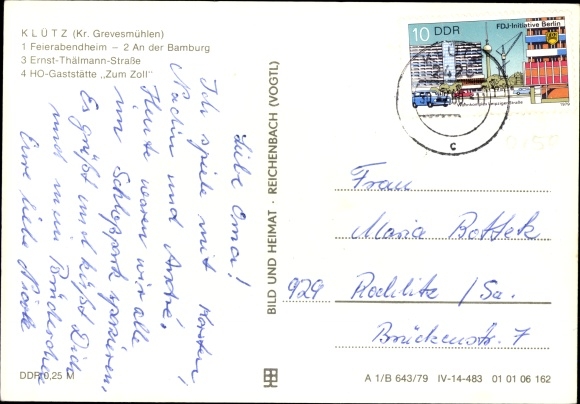 KLÜTZ (Kr. Grevesmühlen)
1 Feierabendheim – 2 An der Bamburg
3 Ernst-Thälmann-Straße
4 HO-Gaststätte "Zum Zoll"
Liebe Oma!
Ich spiele mit Karsten,
Nadin und André.
Heute waren wir alle
im Schloßpark spazieren,
Es grüßt und küßt Dich
und mein Brüderchen
Eure liebe Nicole
DDR 0,25 M
BILD UND HEIMAT · REICHENBACH (VOGTL)
10 DDR
FDJ-Initiative Berlin
c
Frau
Maria Bottek
929 Rochlitz / Sa.
Brückenstr. 7
A 1/B 643/79 IV-14-483 01 01 06 162